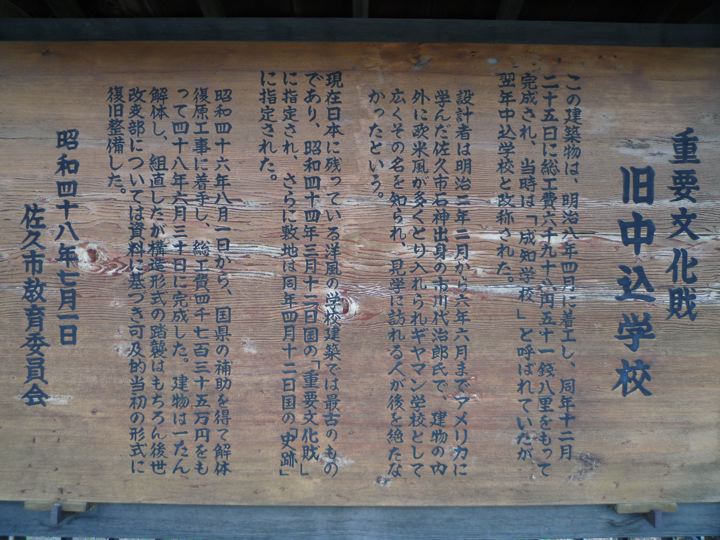 重要文化財
旧中込学校
この建築物は、明治八年四月に着工し、同年十二月
二十五日に総工費六千九十八円五十一銭八里をもって
完成され、当時は「成知学校」と呼ばれていたが、
翌年中込学校と改称された。
設計者は明治二年二月から六年六月までアメリカに
学んだ佐久市石神出身の市川代治郎氏で、建物の内
外に欧米風が多くとり入れられギヤマン学校として
広くその名を知られ、見学に訪れる人が後を絶たな
かったという。
現在日本に残っている洋風の学校建築では最古のもの
であり、昭和四十四年三月十二日国の「重要文化財」
に指定され、さらに敷地は同年四月十二日国の「史跡」
に指定された。
昭和四十六年八月一日から、国県の補助を得て解体
復原工事に着手し、総工費四千七百三十五万円をも
って四十八年六月三十日に完成した。建物は一たん
解体し、組直したが構造形式の踏襲はもちろん後世
改変部については資料に基づき可及的当初の形式に
復旧整備した。
昭和四十八年七月一日
佐久市教育委員会